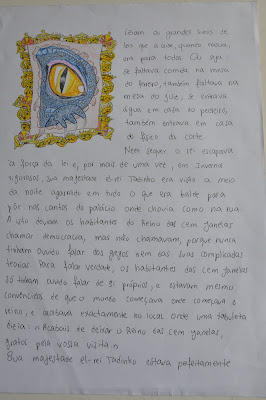 eram as grandes
lei que a use, quando
era para todos. Ou seja
se faltava comida na mesa
do ferreiro, também faltava na
mesa do juiz; se entrava
água em casa do pedreiro,
também entrava em casa
do bispo da corte.
Nem sequer o rei escapava
à força da lei e, por mais de uma vez, em Invernos
rigorosos, sua majestade el-rei Tadinho era visto a meio
da noite agarrado em tudo o que era balde para
pôr nos cantos do palácio onde chovia como na rua.
A isto deviam os habitantes do Reino das cem janelas
chamar democracia, mas não chamavam, porque nunca
tinham ouvido falar dos gregos nem das suas complicadas
teorias. Para falar verdade, os habitantes das cem janelas
só tinham ouvido falar de si próprios, e estavam mesmo
convencidos de que o mundo começava onde começava o
reino, e acabava exactamente no local onde uma tabuleta
dizia: « Acabais de deixar o Reino das cem janelas,
gratos pela vossa visita ».
Sua majestade el-rei Tadinho estava perfeitamente